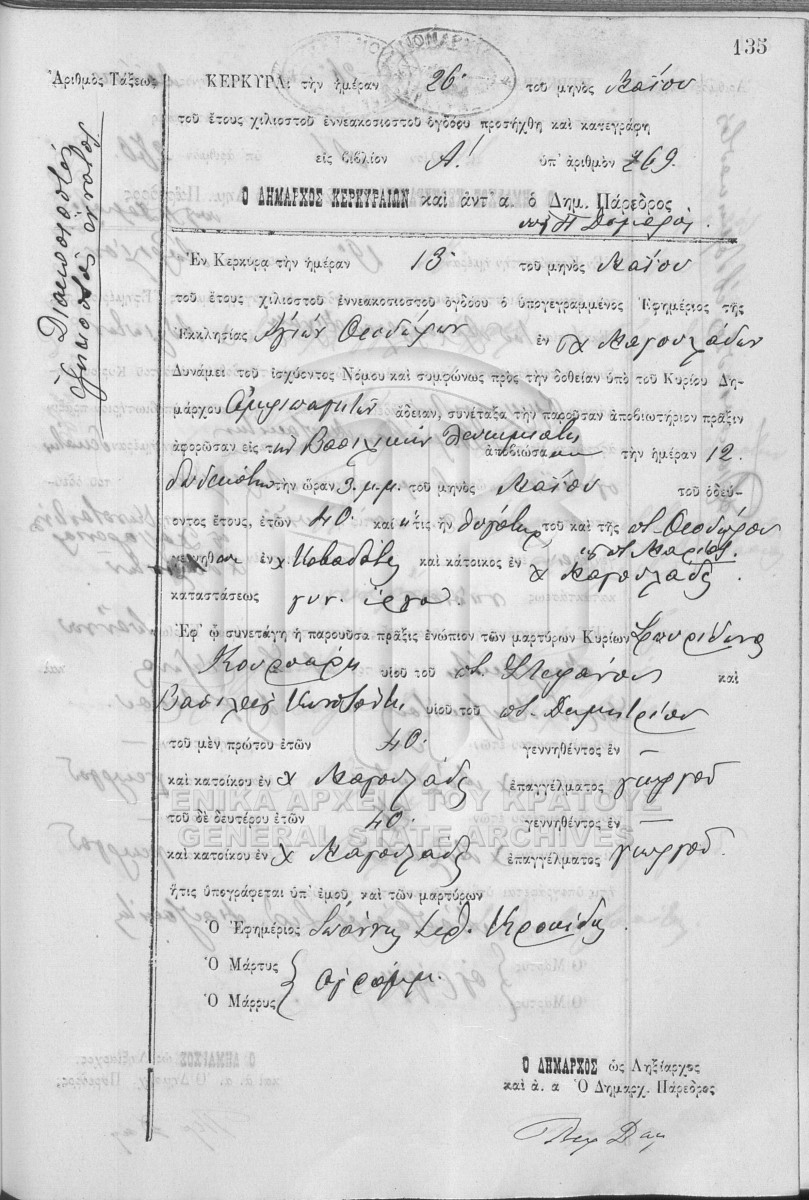 135
Ἀριθμὸς Τάξεως
Διακοσιοστός
ἑξηκοστὸς ἔννατος
ΚΕΡΚΥΡΑ: τὴν ἡμέραν 26. τοῦ μηνὸς Μαΐου
τοῦ ἔτους χιλιοστοῦ ἐννεακοσιοστοῦ ὀγδόου προσήχθη καὶ κατεγράφη
εἰς βιβλίον Α! ὑπ' ἀριθμὸν 269.
Ὁ ΔΗΜΑΡΧΟΣ ΚΕΡΚΥΡΑΙΩΝ καὶ ἀντ α. ὁ Δημ. Πάρεδρος
Ἐν Κερκύρᾳ τὴν ἡμέραν 13. τοῦ μηνὸς Μαΐου
τοῦ ἔτους χιλιοστοῦ ἐννεακοσιοστοῦ ὀγδόου ὁ ὑπογεγραμμένος Ἐφημέριος τῆς
Ἐκκλησίας Ἁγίων Θεοδώρων ἐν χ Μαγουλάδων
Δυνάμει τοῦ ἰσχύοντος Νόμου καὶ συμφώνως πρὸς τὴν δοθεῖσαν ὑπὸ τοῦ Κυρίου Δη-
μάρχου Ἀμφιπαγιτῶν ἄδειαν, συνέταξα τὴν παροῦσαν ἀποβιωτήριον πρᾶξιν
ἀφορῶσαν εἰς τὴν Βασιλικὴν ἀποβιώσασαν τὴν ἡμέραν 12.
δωδεκάτην τὴν ὥραν 3. μ.μ. τοῦ μηνὸς Μαΐου τοῦ ὁδεύ-
οντος ἔτους, ἐτῶν 40. καὶ ἥτις ἦν θυγάτηρ τοῦ καὶ τῆς ποτ. Θεοδώρου
καὶ ποτ. Μαρίας.
γεννηθεῖσα ἐν χ Καβαδάδες καὶ κάτοικος ἐν χ Μαγουλάδες
καταστάσεως γυν. ἔργα.
Ἐφ' ᾧ συνετάγη ἡ παροῦσα πρᾶξις ἐνώπιον τῶν μαρτύρων Κυρίων Σπυρίδωνα
Κουρσάρη υἱοῦ τοῦ ποτ. Στεφάνου καὶ
υἱοῦ τοῦ ποτ. Δημητρίου
τοῦ μὲν πρώτου ἐτῶν 40. γεννηθέντος ἐν —
καὶ κατοίκου ἐν χ Μαγουλάδες ἐπαγγέλματος γεωργοῦ
ΓΕΝΙΚΑ ΑΡΧΕΙΑ ΤΟΥ ΚΡΑΤΟΥΣ
τοῦ δὲ δευτέρου ἐτῶν 40. γεννηθέντος ἐν —
GENERAL STATE ARCHIVES
καὶ κατοίκου ἐν χ Μαγουλάδες ἐπαγγέλματος γεωργοῦ.
ἥτις ὑπογράφεται ὑπ' ἐμοῦ καὶ τῶν μαρτύρων
Ὁ Ἐφημέριος Ἰωάννης Ἱερ. Κροκίδης.
Ὁ Μάρτυς
ἀγράμμ.
Ὁ Μάρρυς
Ὁ ΔΗΜΑΡΧΟΣ ὡς Ληξίαρχος
καὶ ἀ. α Ὁ Δημαρχ. Πάρεδρος